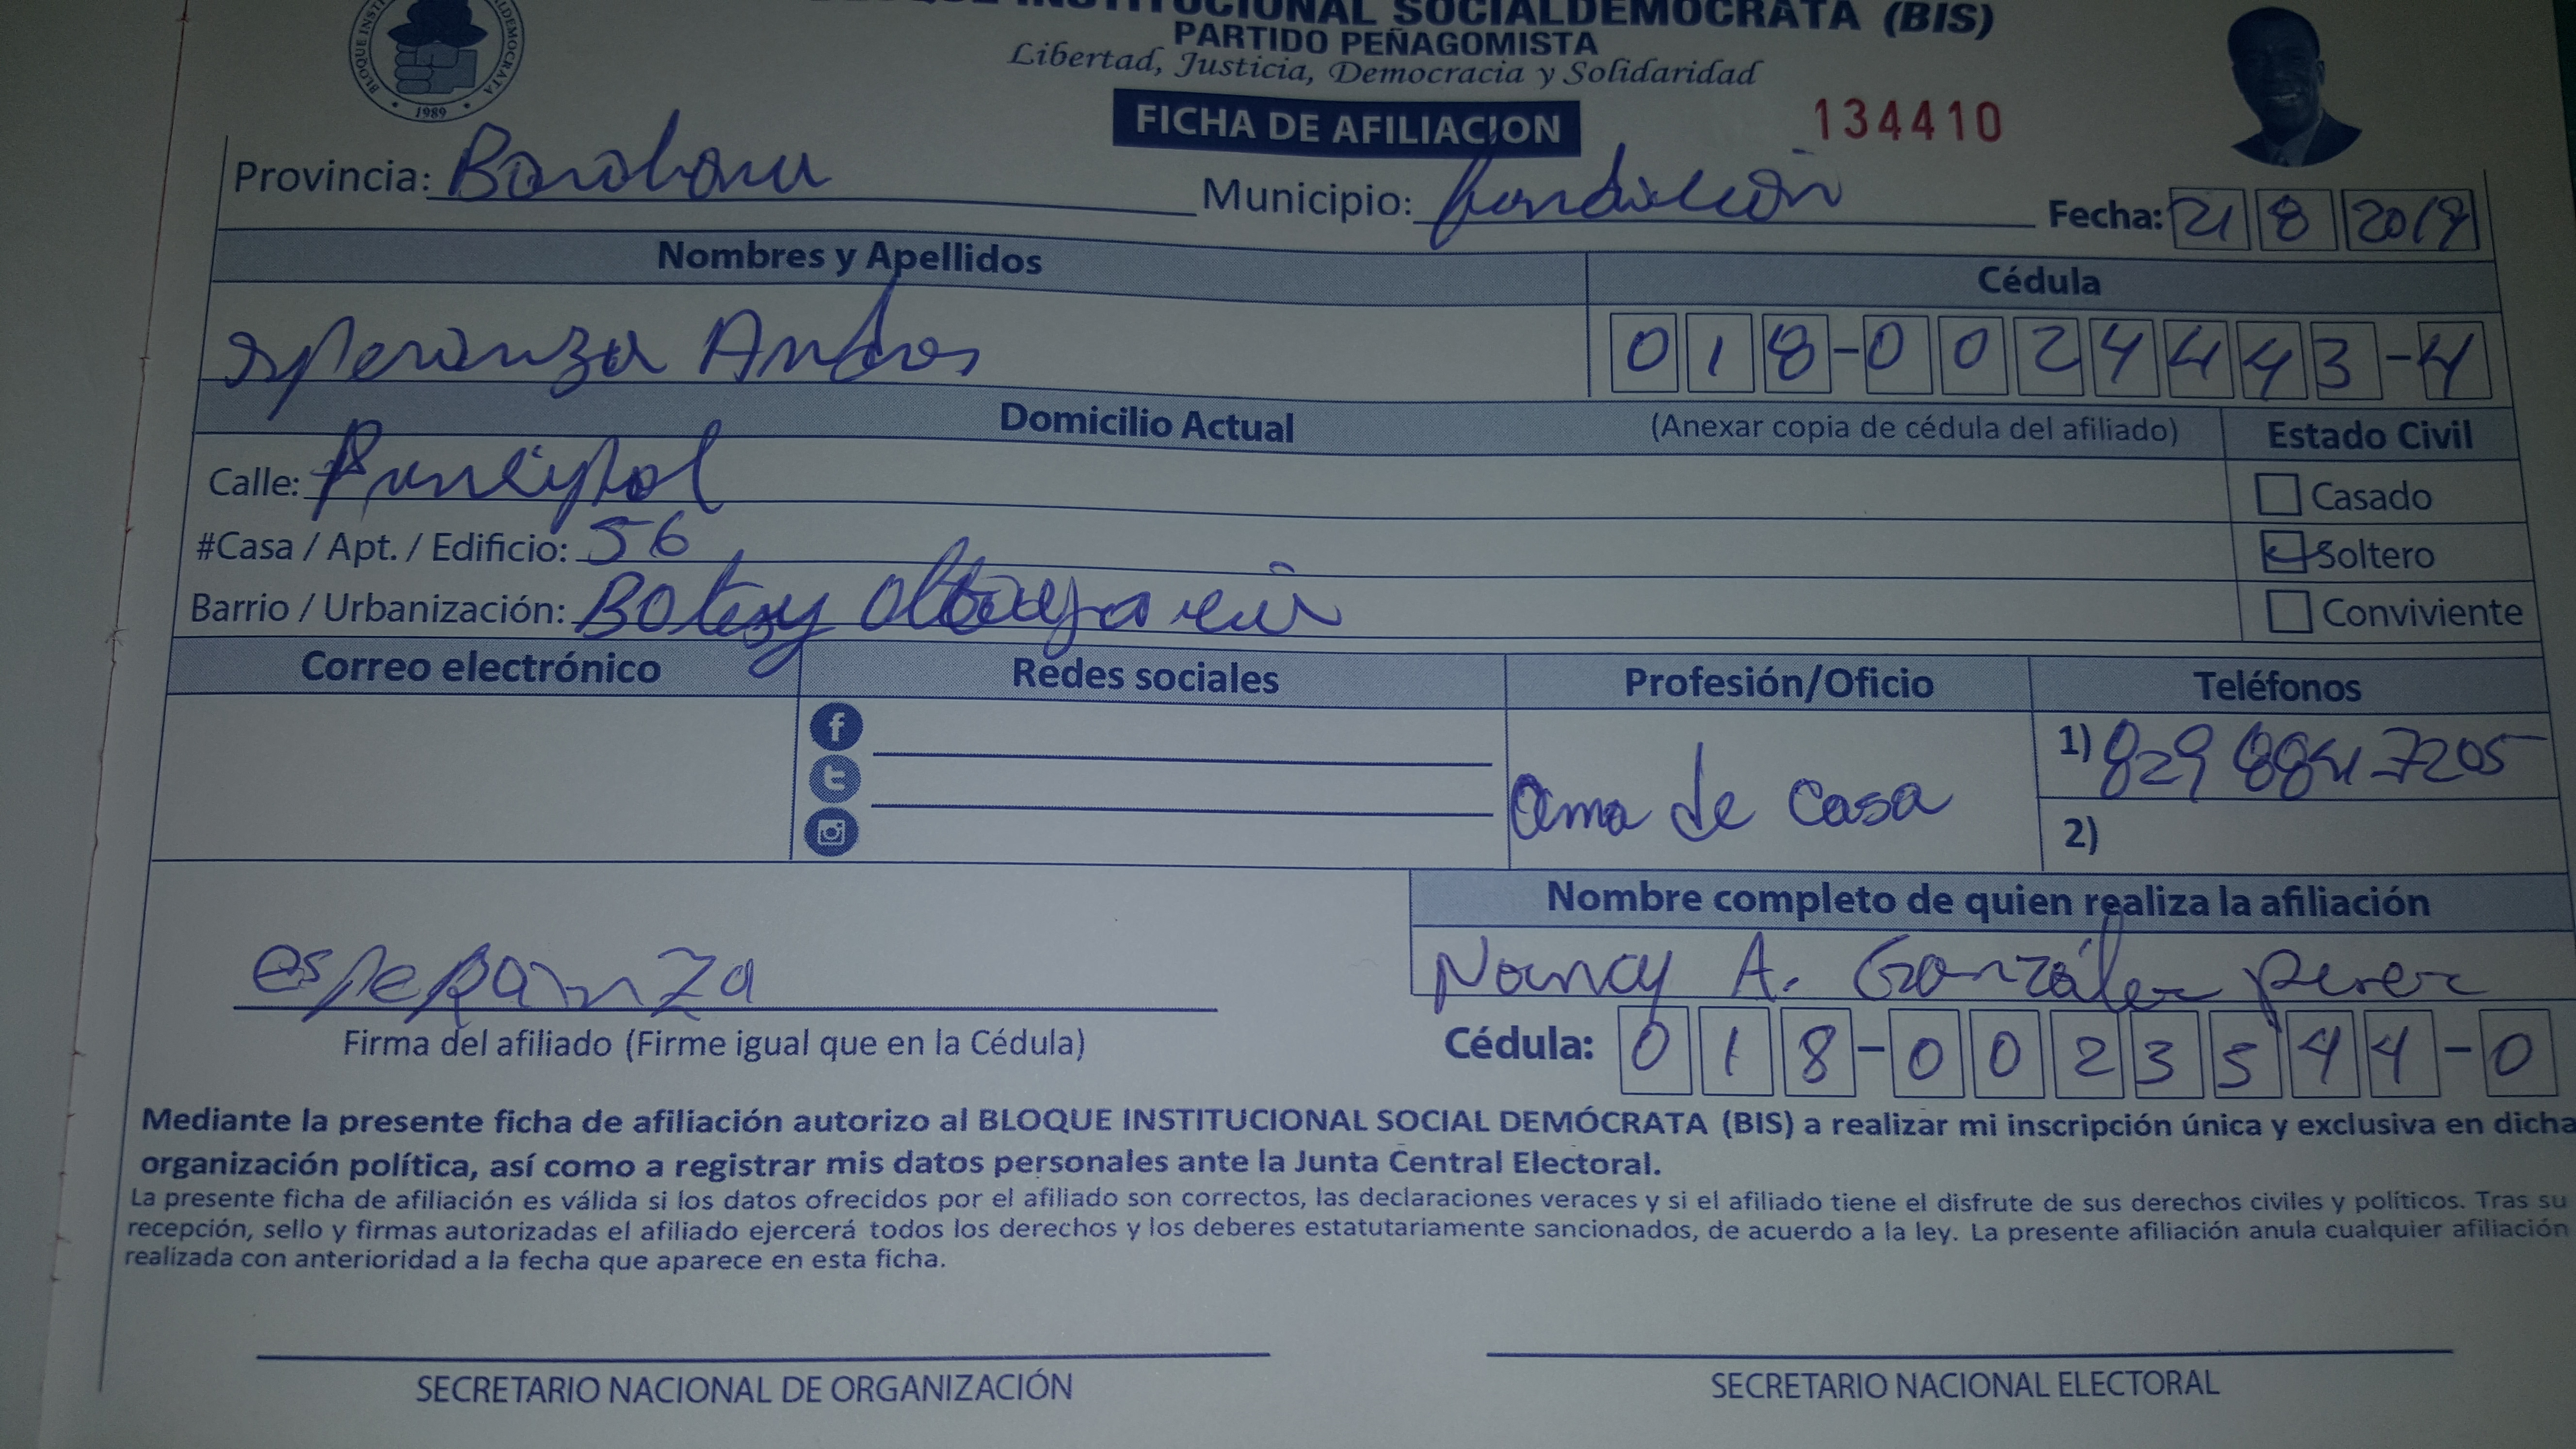 BLOQUE INSTITUCIONAL SOCIALDEMOCRATA (BIS)
PARTIDO PEÑAGOMISTA
Libertad, Justicia, Democracia y Solidaridad
1989
FICHA DE AFILIACION
134410
Provincia: Barahona Municipio: fundación Fecha: 21 8 2019
Nombres y Apellidos Cédula
esperanza Andres 018-0024443-4
Domicilio Actual (Anexar copia de cédula del afiliado) Estado Civil
Calle: Principal Casado
#Casa / Apt. / Edificio: 56 Soltero
Barrio / Urbanización: Batey altagracia Conviviente
Correo electrónico Redes sociales Profesión/Oficio Teléfonos
1) 829 884 7205
ama de casa
2)
Nombre completo de quien realiza la afiliación
esperanza Nancy A. González perez
Firma del afiliado (Firme igual que en la Cédula) Cédula: 018-0023544-0
Mediante la presente ficha de afiliación autorizo al BLOQUE INSTITUCIONAL SOCIAL DEMÓCRATA (BIS) a realizar mi inscripción única y exclusiva en dicha
organización política, así como a registrar mis datos personales ante la Junta Central Electoral.
La presente ficha de afiliación es válida si los datos ofrecidos por el afiliado son correctos, las declaraciones veraces y si el afiliado tiene el disfrute de sus derechos civiles y políticos. Tras su
recepción, sello y firmas autorizadas el afiliado ejercerá todos los derechos y los deberes estatutariamente sancionados, de acuerdo a la ley. La presente afiliación anula cualquier afiliación
realizada con anterioridad a la fecha que aparece en esta ficha.
SECRETARIO NACIONAL DE ORGANIZACIÓN SECRETARIO NACIONAL ELECTORAL